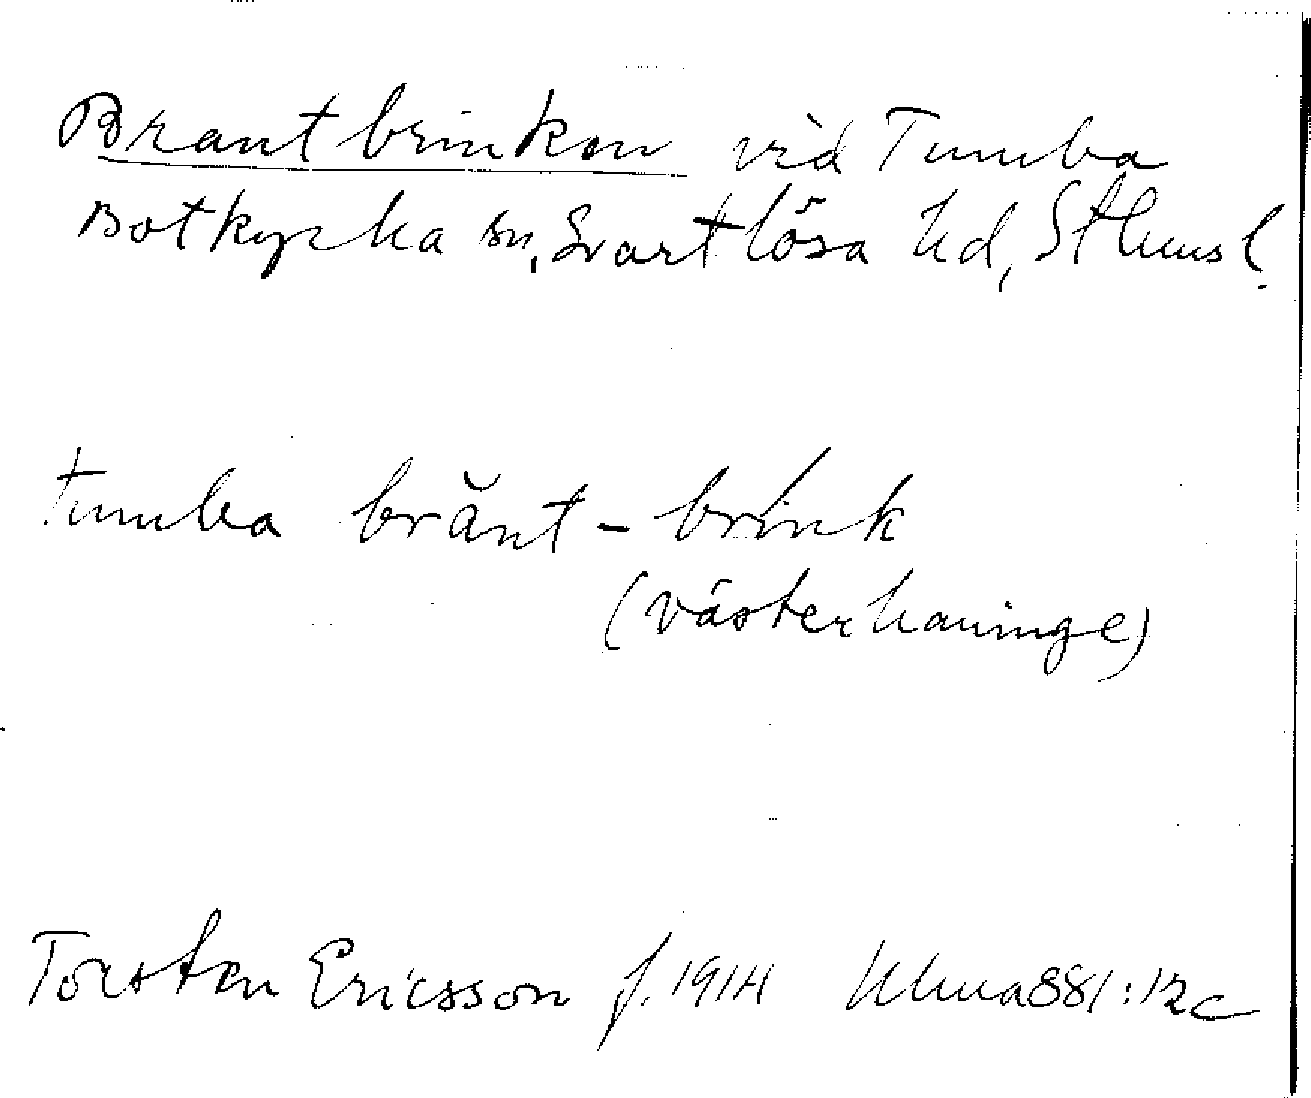 Brantbrinken vid Tumba
Botkyrka sn, Svartlösa hd, Sthms l.
Tumba brănt-brink
(Västerhaninge)
Torsten Ericsson f. 1914 Uma 881:12c